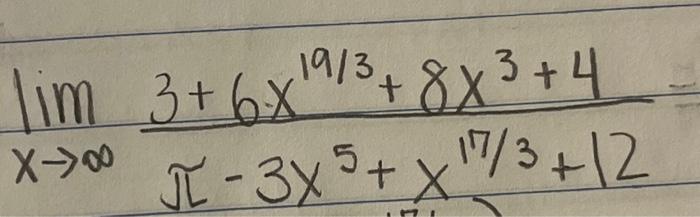 lim 3+6x^19/3+8x^3+4 =
x→∞ π-3x^5+x^17/3+12